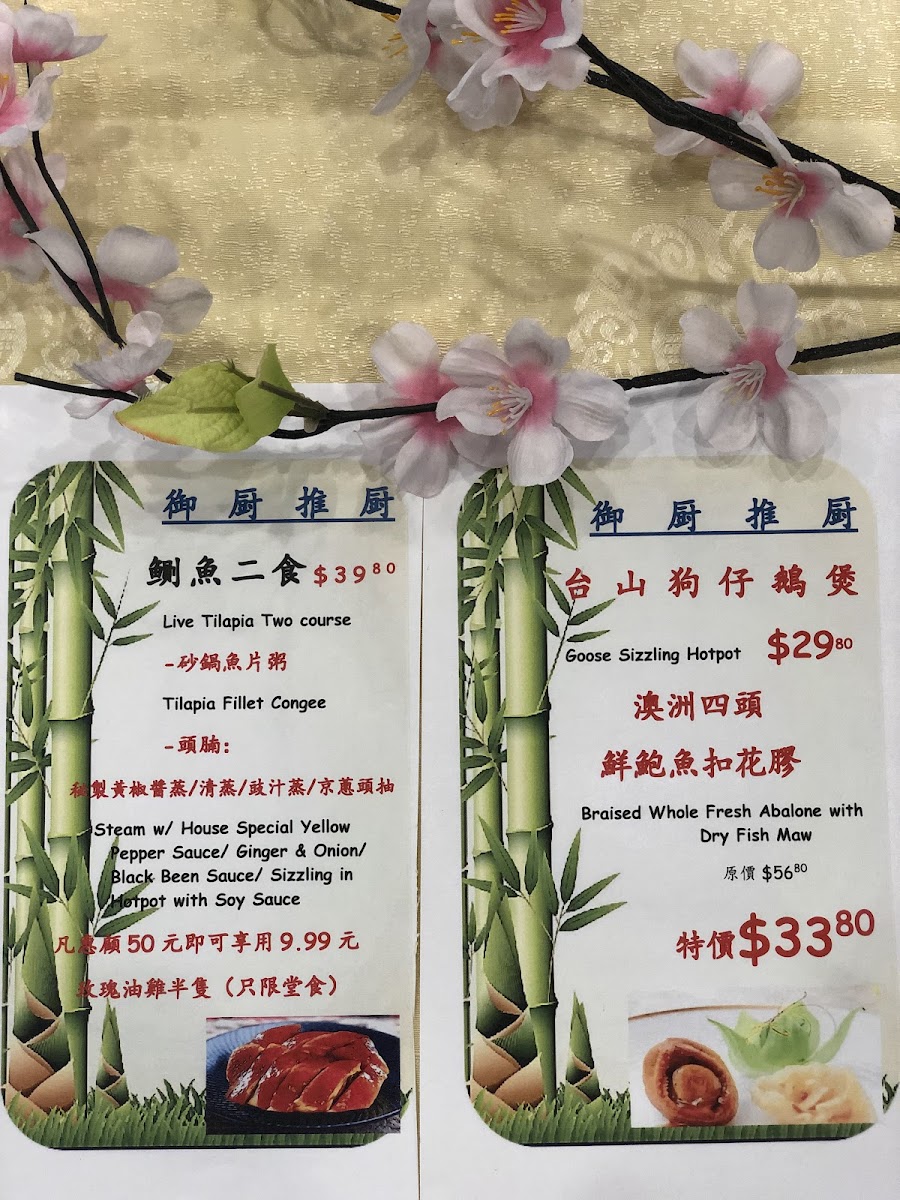 御厨推厨
鲗魚二食 $39⁸⁰
Live Tilapia Two course
-砂鍋魚片粥
Tilapia Fillet Congee
-頭腩：
秘製黃椒醬蒸/清蒸/豉汁蒸/京蔥頭抽
Steam w/ House Special Yellow
Pepper Sauce/ Ginger & Onion/
Black Been Sauce/ Sizzling in
Hotpot with Soy Sauce
凡惠顧 50 元即可享用 9.99 元
玫瑰油雞半隻（只限堂食）
御厨推厨
台山狗仔鵝煲
Goose Sizzling Hotpot $29⁸⁰
澳洲四頭
鮮鮑魚扣花膠
Braised Whole Fresh Abalone with
Dry Fish Maw
原價 $56⁸⁰
特價$33⁸⁰